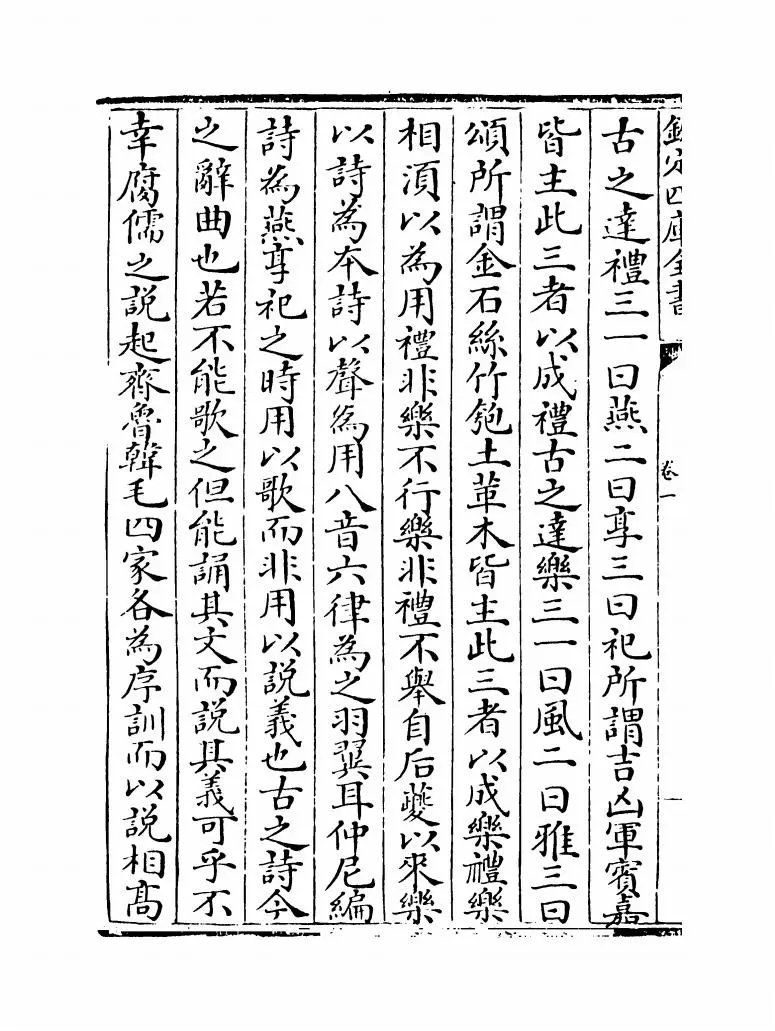 欽定四庫全書
卷一
古之達禮三一曰燕二曰享三曰祀所謂吉凶軍賓嘉
皆主此三者以成禮古之達樂三一曰風二曰雅三曰
頌所謂金石絲竹匏土革木皆主此三者以成樂禮樂
相須以為用禮非樂不行樂非禮不舉自后夔以來樂
以詩為本詩以聲為用八音六律為之羽翼耳仲尼編
詩為燕享祀之時用以歌而非用以說義也古之詩今
之辭曲也若不能歌之但能誦其文而說其義可乎不
幸腐儒之說起齊魯韓毛四家各為序訓而以說相高